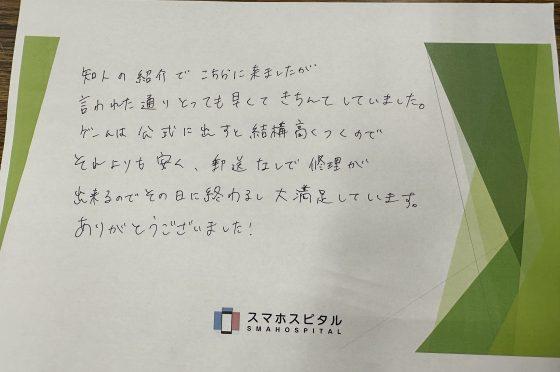 知人の紹介でこちらに来ましたが
言われた通りとっても早くてきちんてしていました。
ゲームは公式に出すと結構高くつくので
それよりも安く、郵送なしで修理が
出来るのでその日に終わるし大満足しています。
ありがとうございました!
スマホスピタル
SMAHOSPITAL